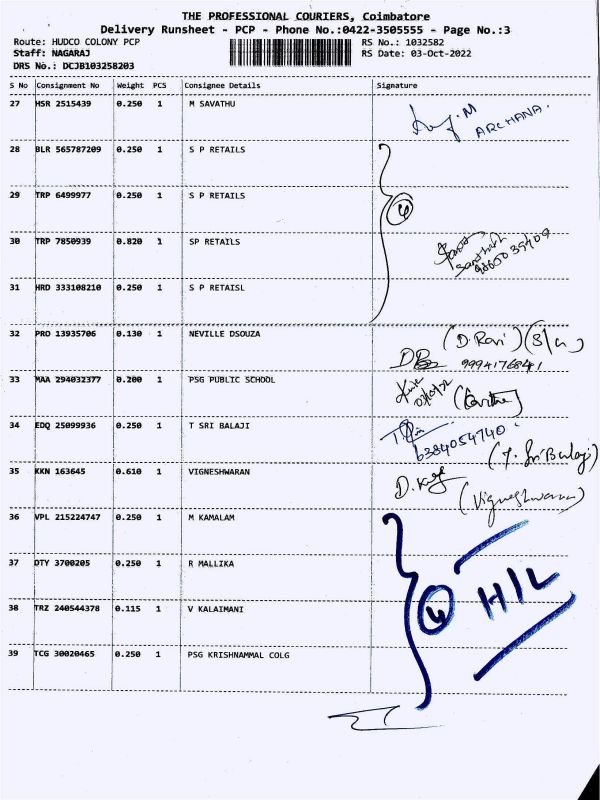 THE PROFESSIONAL COURIERS, Coimbatore
Delivery Runsheet - PCP - Phone No.:0422-3505555 - Page No.:3
Route: HUDCO COLONY PCP RS No.: 1032582
Staff: NAGARAJ RS Date: 03-Oct-2022
DRS No.: DCJB103258203
S No Consignment No Weight PCS Consignee Details Signature
27 HSR 2515439 0.250 1 M SAVATHU
M
ARCHANA.
28 BLR 565787209 0.250 1 S P RETAILS
29 TRP 6499977 0.250 1 S P RETAILS
4
30 TRP 7850939 0.820 1 SP RETAILS
31 HRD 333108210 0.250 1 S P RETAISL
32 PRO 13935706 0.130 1 NEVILLE DSOUZA (D. Ravi) (S/w)
9994176841
33 MAA 294032377 0.200 1 PSG PUBLIC SCHOOL
34 EDQ 25099936 0.250 1 T SRI BALAJI
6384054740
(T. Sri Balaji)
35 KKN 163645 0.610 1 VIGNESHWARAN
(Vigneshwaran)
36 VPL 215224747 0.250 1 M KAMALAM
37 DTY 3700205 0.250 1 R MALLIKA
H/L
38 TRZ 240544378 0.115 1 V KALAIMANI 4
39 TCG 30020465 0.250 1 PSG KRISHNAMMAL COLG